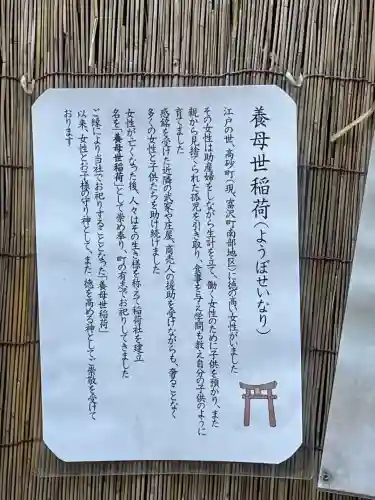 養母世稲荷(ようぼせいなり)
江戸の世、高砂町(現、富沢町南部地区)に徳の高い女性がいました
その女性は助産婦をしながら生計を立て、働く女性のために子供を預かり、また
親から見捨てられた孤児を引き取り、食事を与え学問も教え自分の子供のように
育てました
感銘を受けた近隣の武家や庄屋、商売人の援助を受けながらも、奢ることなく
多くの女性と子供たちを助け続けました
女性が亡くなった後、人々はその生き様を称えて稲荷社を建立
名を「養母世稲荷」として崇め奉り、町の有志でお祀りしてきました
ご縁により当社でお祀りすることとなった「養母世稲荷」
以来、女性とお子様の守り神として、また、徳を高める神としてご崇敬を受けて
おります